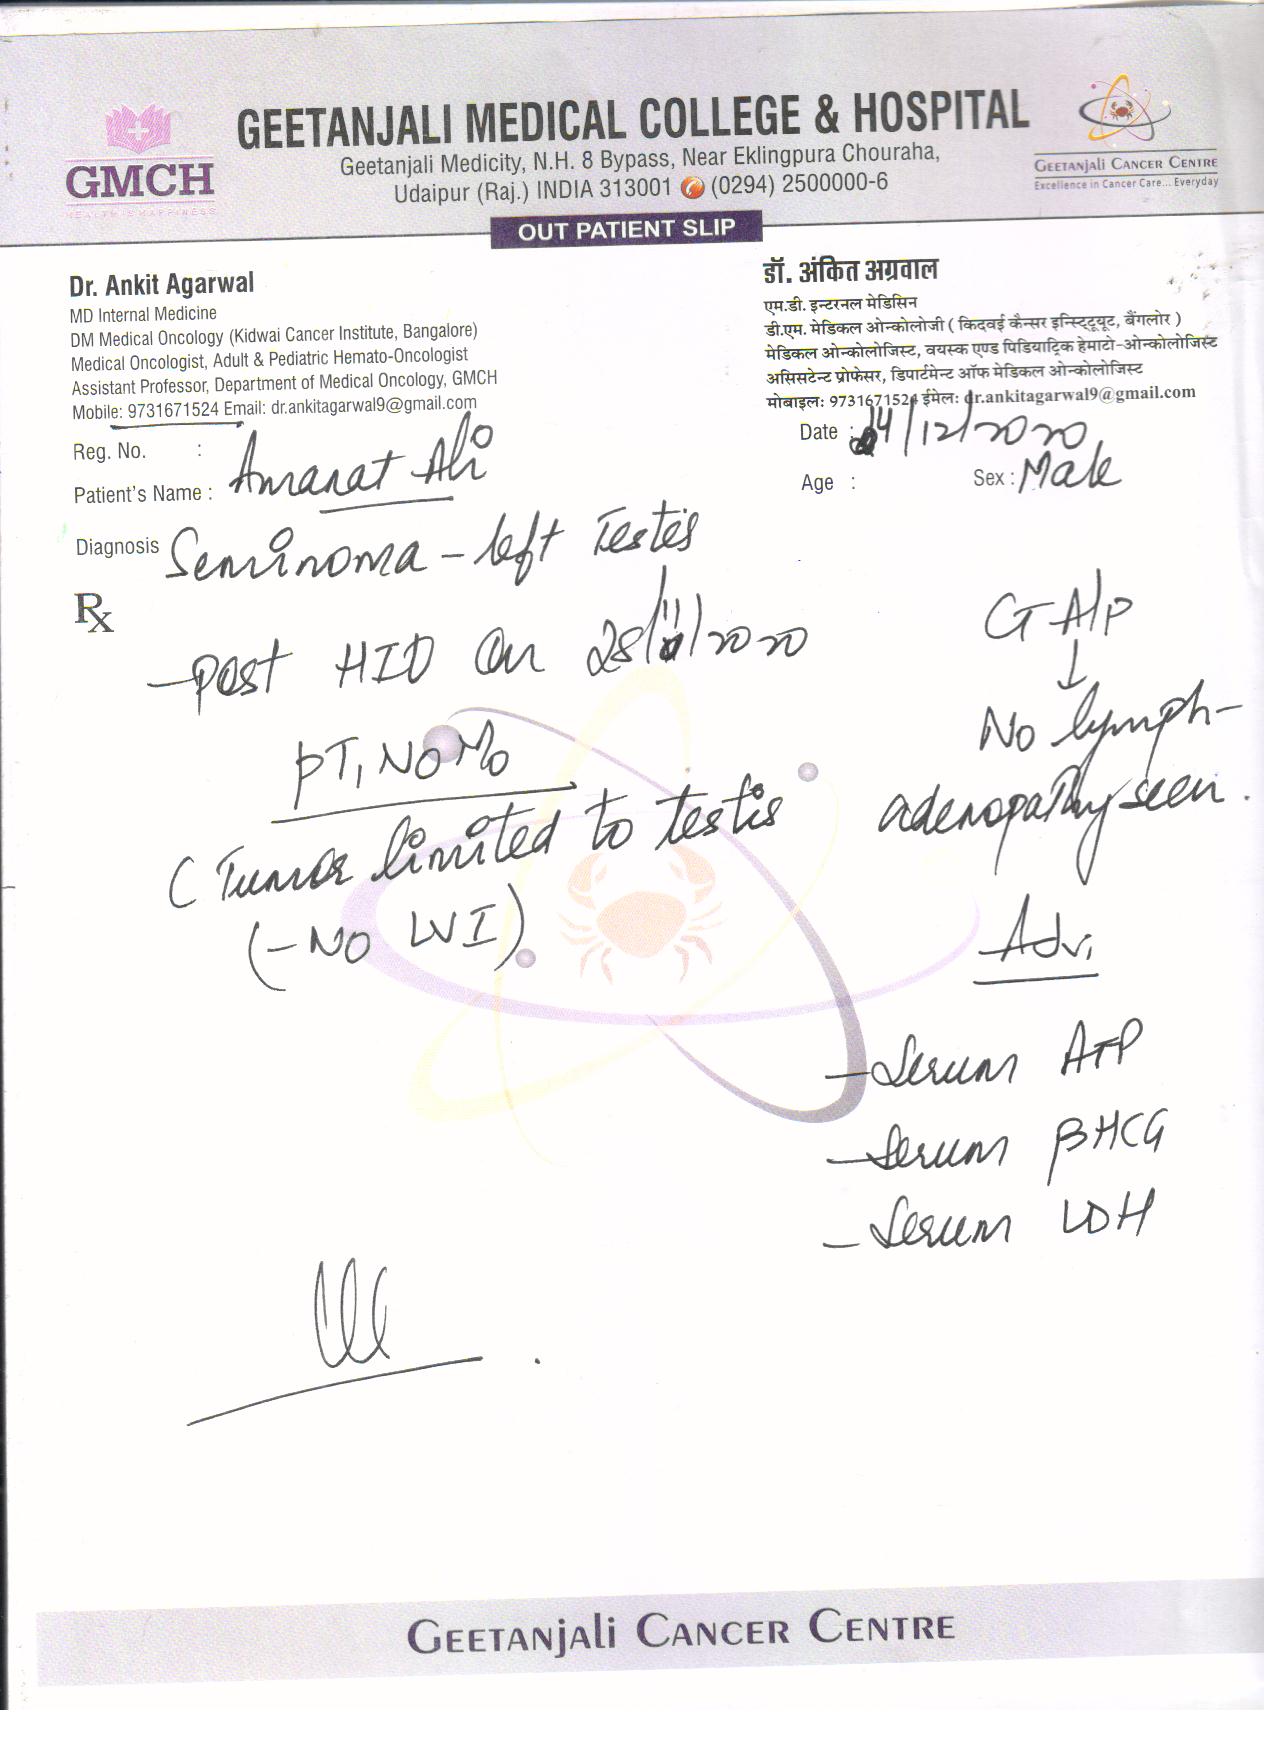 GMCH
HEALTH IS HAPPINESS
GEETANJALI MEDICAL COLLEGE & HOSPITAL
Geetanjali Medicity, N.H. 8 Bypass, Near Eklingpura Chouraha,
Udaipur (Raj.) INDIA 313001 (0294) 2500000-6
GEETANJALI CANCER CENTRE
Excellence in Cancer Care... Everyday
OUT PATIENT SLIP
Dr. Ankit Agarwal
MD Internal Medicine
DM Medical Oncology (Kidwai Cancer Institute, Bangalore)
Medical Oncologist, Adult & Pediatric Hemato-Oncologist
Assistant Professor, Department of Medical Oncology, GMCH
Mobile: 9731671524 Email: dr.ankitagarwal9@gmail.com
डॉ. अंकित अग्रवाल
एम.डी. इन्टरनल मेडिसिन
डी.एम. मेडिकल ओन्कोलोजी ( किदवई कैन्सर इन्स्टिट्यूट, बैंगलोर )
मेडिकल ओन्कोलोजिस्ट, वयस्क एण्ड पिडियाट्रिक हेमाटो-ओन्कोलोजिस्ट
असिसटेन्ट प्रोफेसर, डिपार्टमेन्ट ऑफ मेडिकल ओन्कोलोजिस्ट
मोबाइल: 9731671524 ईमेल: dr.ankitagarwal9@gmail.com
Reg. No. :
Date : 24/12/2020
Patient's Name : Amanat Ali
Age : Sex : Male
Diagnosis Seminoma - left Testis
Rx
- post HID on 28/11/2020
pT1 N0 M0
( Tumor limited to testis
(- No LVI)
A/P
↓
No lymph-
adenopathy seen.
Adv,
- Serum AFP
- Serum βHCG
- Serum LDH
GEETANJALI CANCER CENTRE